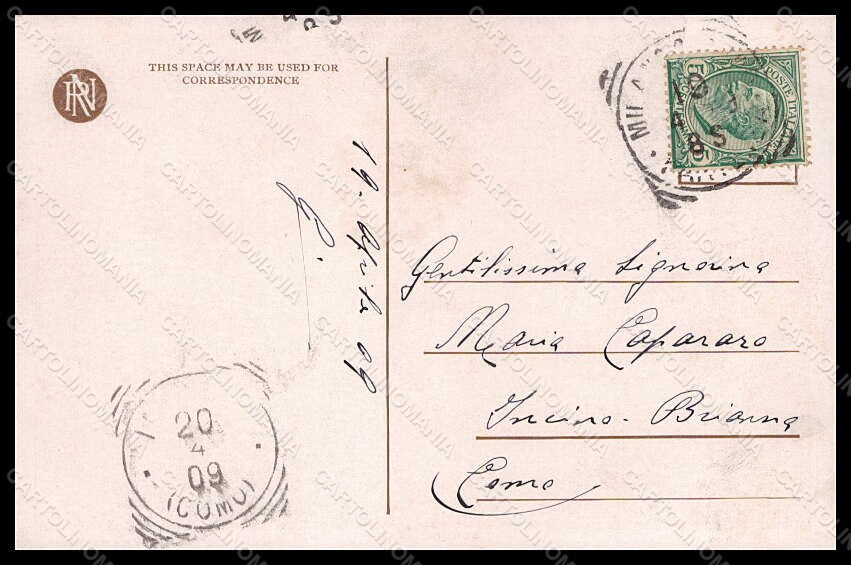 THIS SPACE MAY BE USED FOR
CORRESPONDENCE
19. Aprile 09
G.
POSTE ITALIANE
MILANO
Gentilissima Signorina
Maria Capararo
Incino - Brianza
Como
20
4
09
(COMO)
CARTOLINOMANIA